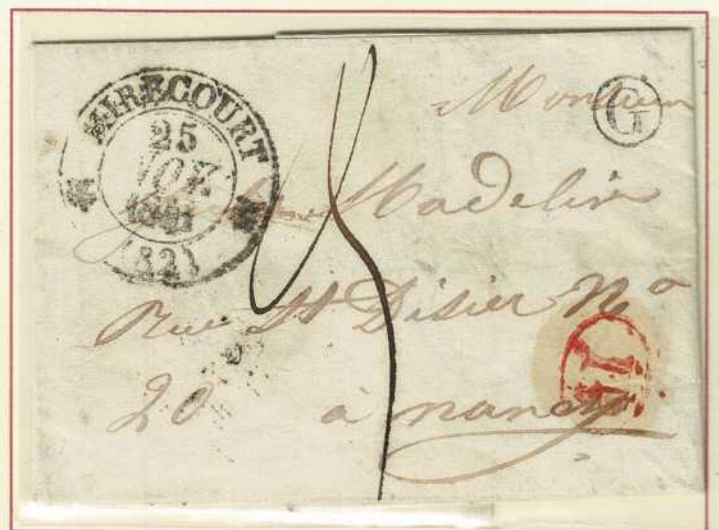 MIRECOURT
25
NOV.
(82)
G
Monsieur
Madelin
Rue St Disier No
20 à nancy